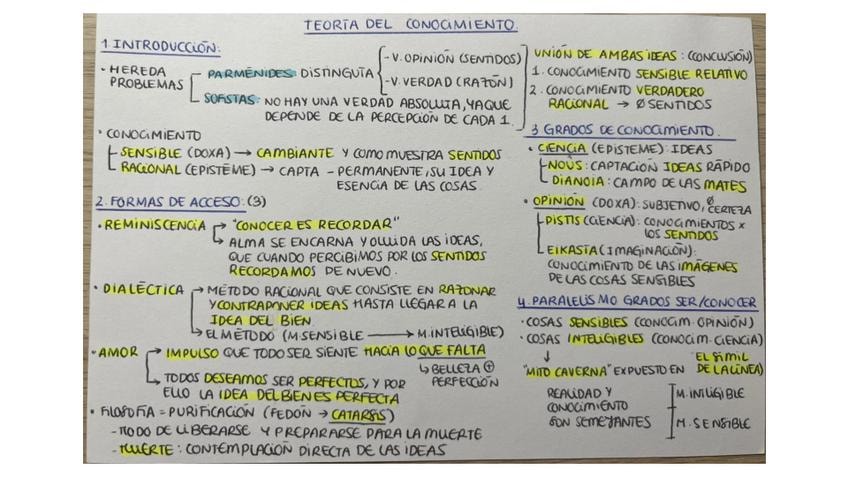 TEORÍA DEL CONOCIMIENTO.
1. INTRODUCCIÓN:
· HEREDA PROBLEMAS
PARMÉNIDES: DISTINGUÍA
- V. OPINIÓN (SENTIDOS)
- V. VERDAD (RAZÓN)
SOFISTAS: NO HAY UNA VERDAD ABSOLUTA, YA QUE
DEPENDE DE LA PERCEPCIÓN DE CADA 1.
· CONOCIMIENTO
SENSIBLE (DOXA) → CAMBIANTE Y COMO MUESTRA SENTIDOS
RACIONAL (EPISTEME) → CAPTA - PERMANENTE, SU IDEA Y
ESENCIA DE LAS COSAS.
2. FORMAS DE ACCESO: (3)
· REMINISCENCIA → "CONOCER ES RECORDAR"
→ ALMA SE ENCARNA Y OLVIDA LAS IDEAS,
QUE CUANDO PERCIBIMOS POR LOS SENTIDOS
RECORDAMOS DE NUEVO.
· DIALÉCTICA → MÉTODO RACIONAL QUE CONSISTE EN RAZONAR
Y CONTRAPONER IDEAS HASTA LLEGAR A LA
IDEA DEL BIEN.
→ EL MÉTODO (M.SENSIBLE → M.INTELIGIBLE)
· AMOR → IMPULSO QUE TODO SER SIENTE HACIA LO QUE FALTA
↳ BELLEZA ⊕
PERFECCIÓN
→ TODOS DESEAMOS SER PERFECTOS, Y POR
ELLO LA IDEA DEL BIEN ES PERFECTA
· FILOSOFÍA = PURIFICACIÓN (FEDÓN → CATARSIS)
- MODO DE LIBERARSE Y PREPARARSE PARA LA MUERTE
- MUERTE: CONTEMPLACIÓN DIRECTA DE LAS IDEAS
UNIÓN DE AMBAS IDEAS: (CONCLUSIÓN)
1. CONOCIMIENTO SENSIBLE RELATIVO
2. CONOCIMIENTO VERDADERO
RACIONAL → Ø SENTIDOS
3. GRADOS DE CONOCIMIENTO.
· CIENCIA (EPISTEME): IDEAS
NOÛS: CAPTACIÓN IDEAS RÁPIDO
DIANOIA: CAMPO DE LAS MATES
· OPINIÓN (DOXA): SUBJETIVO, Ø CERTEZA
PISTIS (CIENCIA): CONOCIMIENTOS X
LOS SENTIDOS
EIKASÍA (IMAGINACIÓN):
CONOCIMIENTO DE LAS IMÁGENES
DE LAS COSAS SENSIBLES
4. PARALELISMO GRADOS SER/CONOCER
· COSAS SENSIBLES (CONOCIM. OPINIÓN)
· COSAS INTELIGIBLES (CONOCIM. CIENCIA)
↓
"MITO CAVERNA" EXPUESTO EN EL SÍMIL DE LA LÍNEA)
REALIDAD Y
CONOCIMIENTO
SON SEMEJANTES
M. INTELIGIBLE
M. SENSIBLE